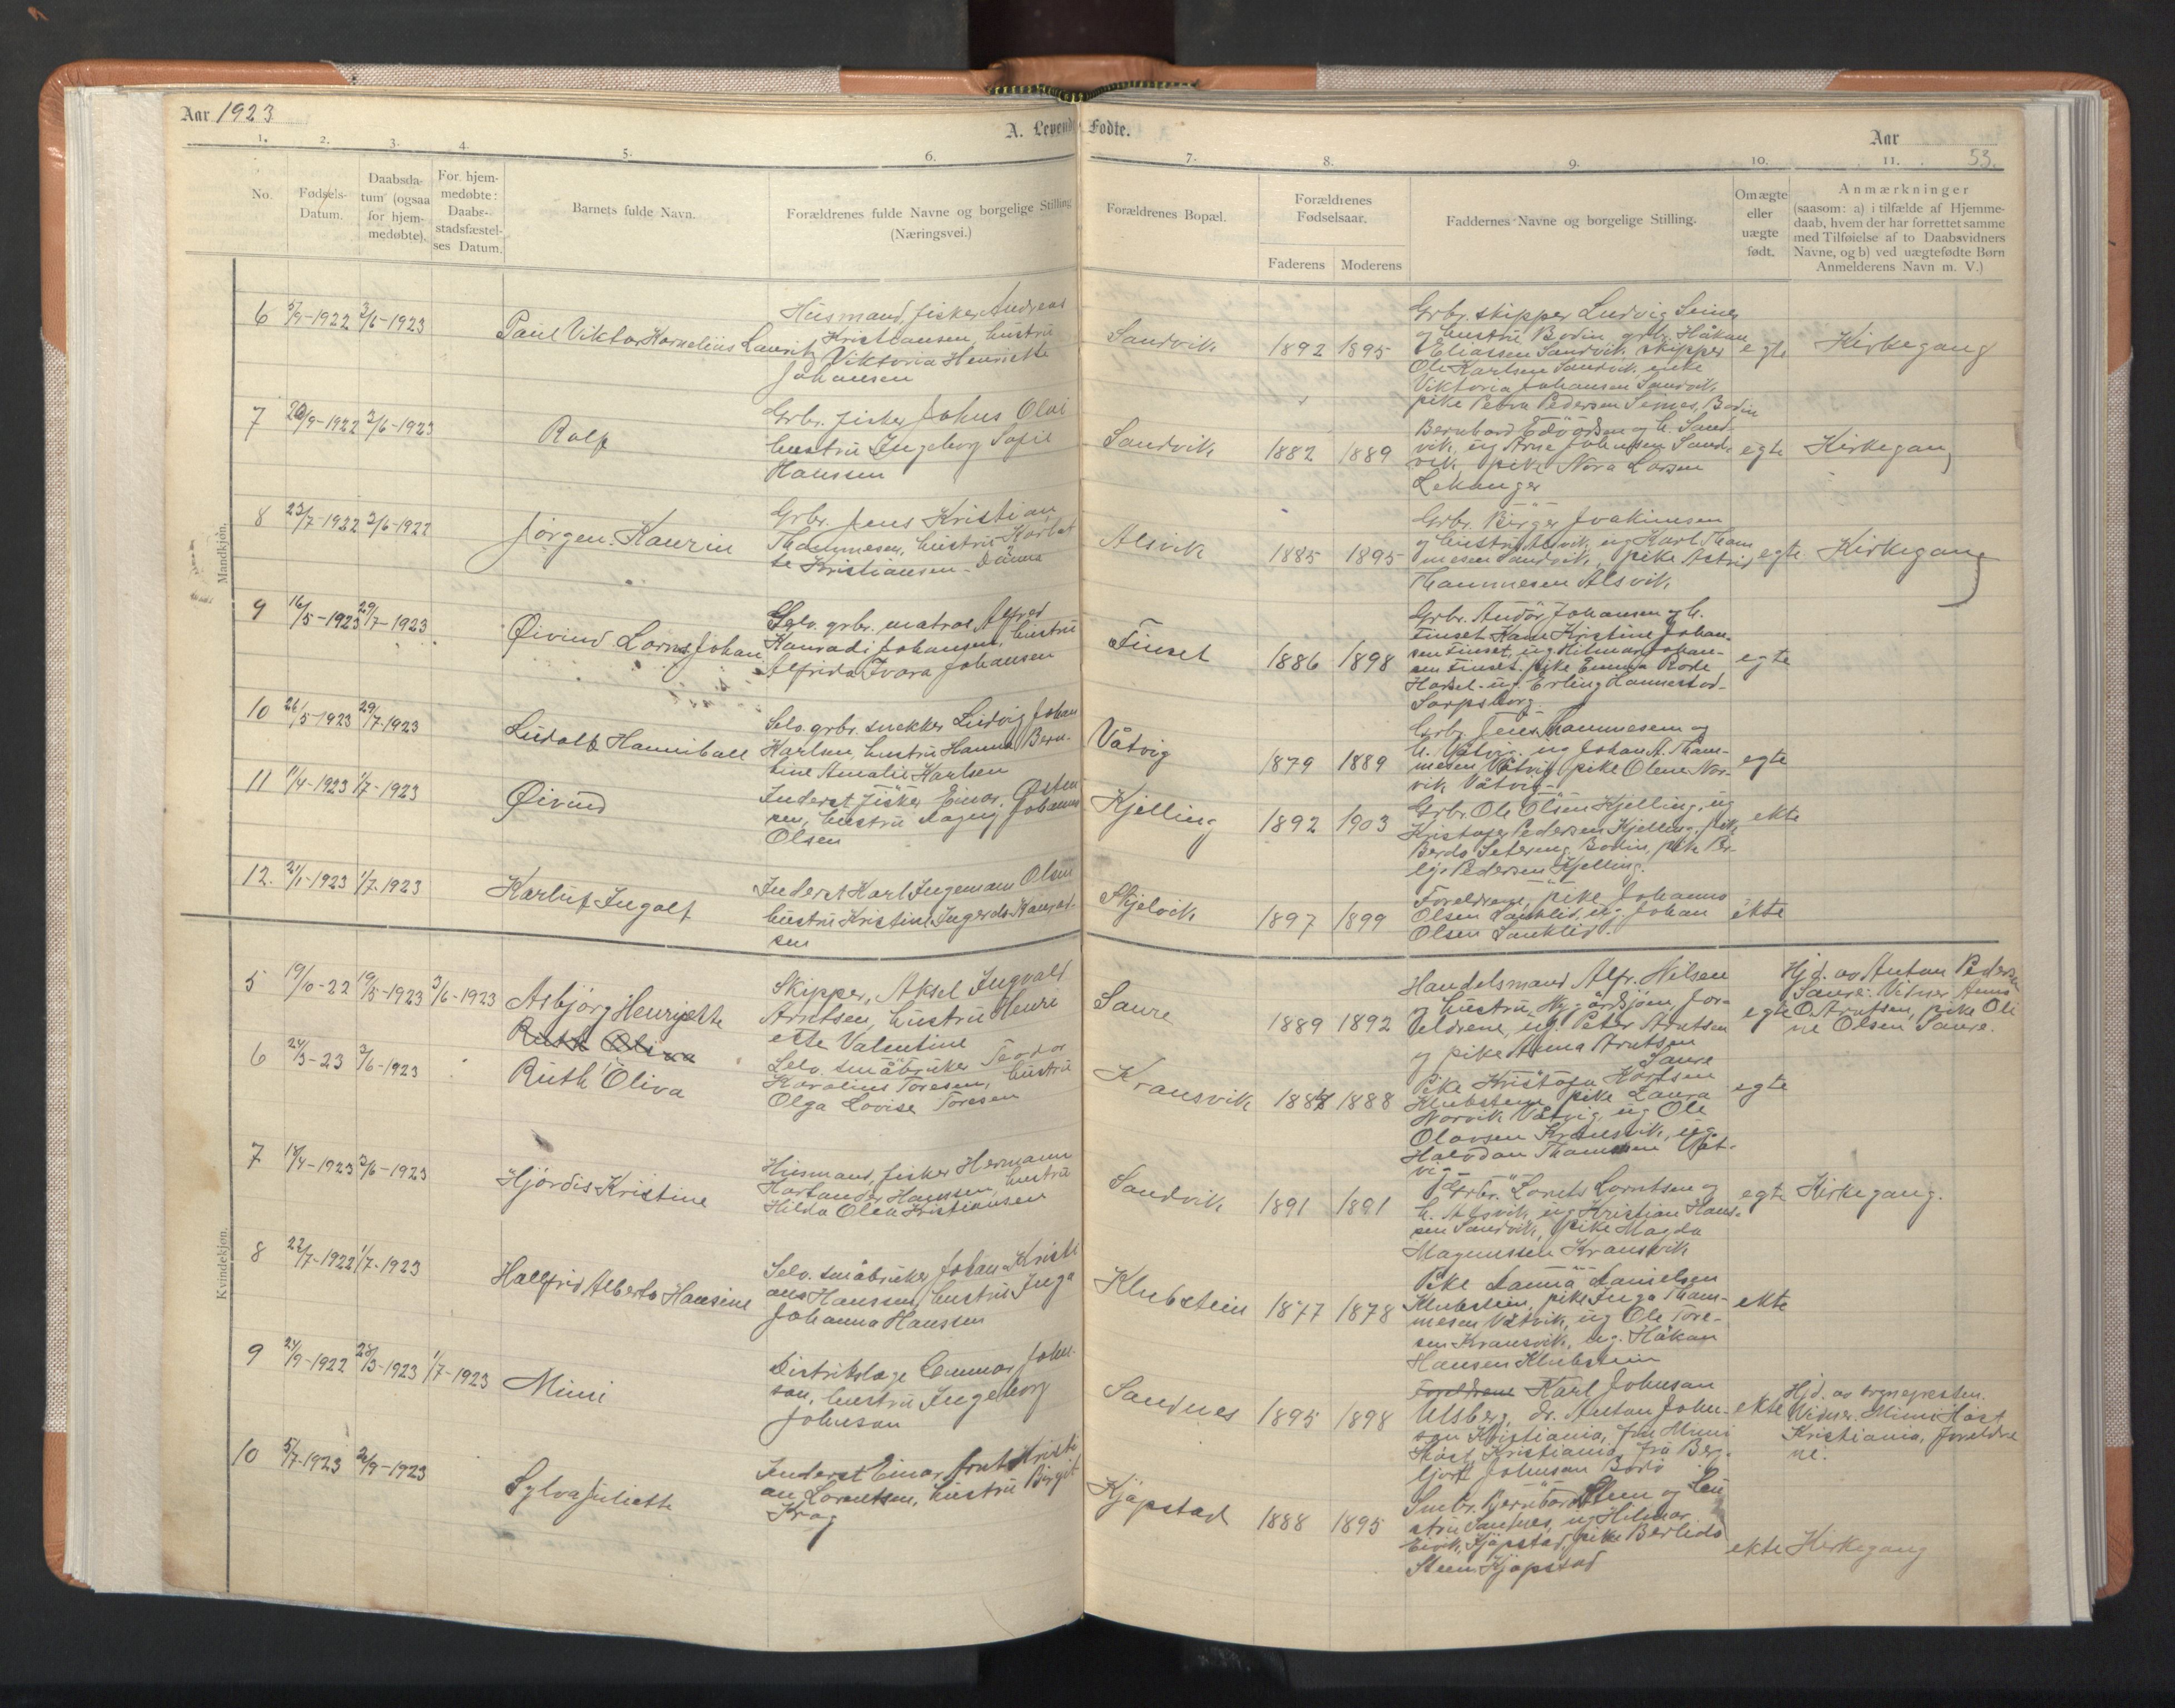 Aar 1923
A. Levende Fødte.
Aar
53.
1. 2. 3. 4. 5. 6. 7. 8. 9. 10. 11.
No.
Fødsels-
Datum.
Daabsda-
tum (ogsaa
for hjem-
medøbte).
For hjem-
medøbte:
Daabs-
stadsfæstel-
ses Datum.
Barnets fulde Navn.
Forældrenes fulde Navne og borgelige Stilling
(Næringsvei.)
Forældrenes Bopæl.
Forældrenes
Fødselsaar.
Faderens Moderens
Faddernes Navne og borgelige Stilling.
Om ægte
eller
uægte
født.
Anmærkninger
(saasom: a) i tilfælde af Hjemme-
daab, hvem der har forrettet samme
med Tilføielse af to Daabsvidners
Navne, og b) ved uægtefødte Børn
Anmelderens Navn m. V.)
Mandkjøn.
6 5/9-1922 3/6-1923
Paul Viktor Kornelius Lauritz
Husmand, fisker Andreas
Kristiansen, hustru
Viktoria Henriette
Johansen
Sandvik 1892 1895
Grbr. skipper Ludvig Seines
og hustru Bodin, grbr. Håkon
Eliassen Sandvik, skipper
Ole Karlsen Sandvik, enke
Viktoria Johansen Sandvik
pike Petra Pedersen Seines, Bodin
egte Kirkegang
7 20/9-1922 3/6-1923
Rolf
Grbr. fisker Johns Olai
hustru Ingeborg Sofie
Hanssen
Sandvik 1882 1889
Bernhard Edvardsen og h. Sand-
vik, ug Arne Johansen Sand-
vik, pike Nora Larsen
Lekanger
egte Kirkegang
8 23/7-1922 3/6-1922
Jørgen Kaurin
Grbr. Jens Kristian
Thommesen, hustru
Kristiansen - Dønna
Alsvik 1885 1895
Grbr. Birger Joakimsen
og hustru Alsvik, ug Karl Thom
mesen Sandvik, pike Astrid
Thommesen Alsvik
egte Kirkegang
9 16/5-1923 29/7-1923
Øivind Lorns Johan
Selv. grbr. matros Alfred
Konradi Johansen, hustru
Alfrida Ivara Johansen
Finset 1886 1898
Grbr. Andør Johansen og h.
Finset Kristine Johan-
sen Finset, ug Hilmar Johan-
sen Finset, pike Emma Rode
ug. Erling Hannestad-
Sarpsborg.
egte
10 26/5-1923 29/7-1923
Ludolf Hanniball
Selv. grbr. snekker Ludvig Johan
Karlsen, hustru Hanna Bern-
tine Amalie Karlsen
Våtvig 1879 1889
Grbr. Jens Thommesen og
h. Våtvig, ug Johan A. Thom-
mesen Våtvig, pike Olene Nor-
vik Våtvig-
egte
11 11/4-1923 1/7-1923
Øivind
Inderst fisker Einar Osten
sen, hustru Johanne
Olsen
Kjelling 1892 1903
Grbr. Ole Olsen Kjelling, ug
Kristofer Pedersen Kjelling, pike
Bodin, pike
Pedersen Kjelling.
ekte
12. 21/1-1923 1/7-1923
Karluf Ingolf
Inderst Karl Ingemann Olsen
hustru Kristine Ingerda
sen
Skjelvik 1897 1899
Foreldrene, pike Johanna
Olsen Sanklid, ug. Johan
Olsen Sanklid.
ekte
Kvindekjøn.
5 19/10-22 19/5-1923 3/6-1923
Asbjørg Henrijette
Skipper, Aksel Ingvald
Arntsen, hustru Henri
ette Valentine
Saure 1889 1892
Handelsmand Alfr. Nilsen
og hustru Nygårdsjøen, For-
eldrene, ug Peter Arntsen
og pike Anna Arntsen
Saure
egte
Hjd. av Anton Pedersen
Saure. Vidner Anna
O. Arntsen, pike Oli
ne Olsen Saure.
Ruth Oliva
6 24/3-23 3/6-1923
Ruth Oliva
Selv. småbruker Teodor
Karolius Toresen, hustru
Olga Lovise Toresen
Kransvik 1887 1888
Pike Kristofa
Klubstein, pike Laura
Norvik Våtvig, ug Ole
Olavsen Kransvik, ug
Halvdan Thommesen Våt-
vig
egte
7 18/4-1923 3/6-1923
Hjørdis Kristine
Husmand, fisker Hermann
Hartander Hanssen, hustru
Hilda Olea Kristiansen
Sandvik 1891 1891
Grbr. Lornts Lorntsen og
h. Alsvik, ug Kristian Hans-
sen Sandvik, pike Magda
Magnussen Kransvik
egte Kirkegang.
8 22/7-1922 1/7-1923
Hallfrid Alberta Hansine
Selv. småbruker Johan Kristi
ans Hanssen, hustru Inga
Johanna Hanssen
Klubstein 1877 1878
Pike Danielsen
Klubstein, pike Inga Thom-
mesen Våtvik, ug Ole Tore-
sen Kransvik, ug. Håkon
Hansen Klubstein
ekte
9 24/9-1922 28/3-1923 1/7-1923
Mimi
Distriktslæge Gunnar John-
son, hustru Ingeborg
Johnson
Sandnes 1895 1898
Foreldrene Karl Johnson
Ulsberg, dr. Anton John-
son Kristiania, Frk Mimi
Høst Kristiania, Fru Ber-
ljott Johnson Bodø
ekte
Hjd. av sognepresten.
Vidner. Mimi Høst
Kristiania, foreldre
ne.
10 5/7-1923 2/9-1923
Sylva Juliette
Inderst Einar Arnt Kristi
an Lorentsen, hustru Birgit
Krag
Kjøpstad 1888 1895
Smbr. Bernhard Steen og hu
stru Sandnes, ug Hilmar
Eivik, Kjøpstad, pike
Steen Kjøpstad
ekte Kirkegang